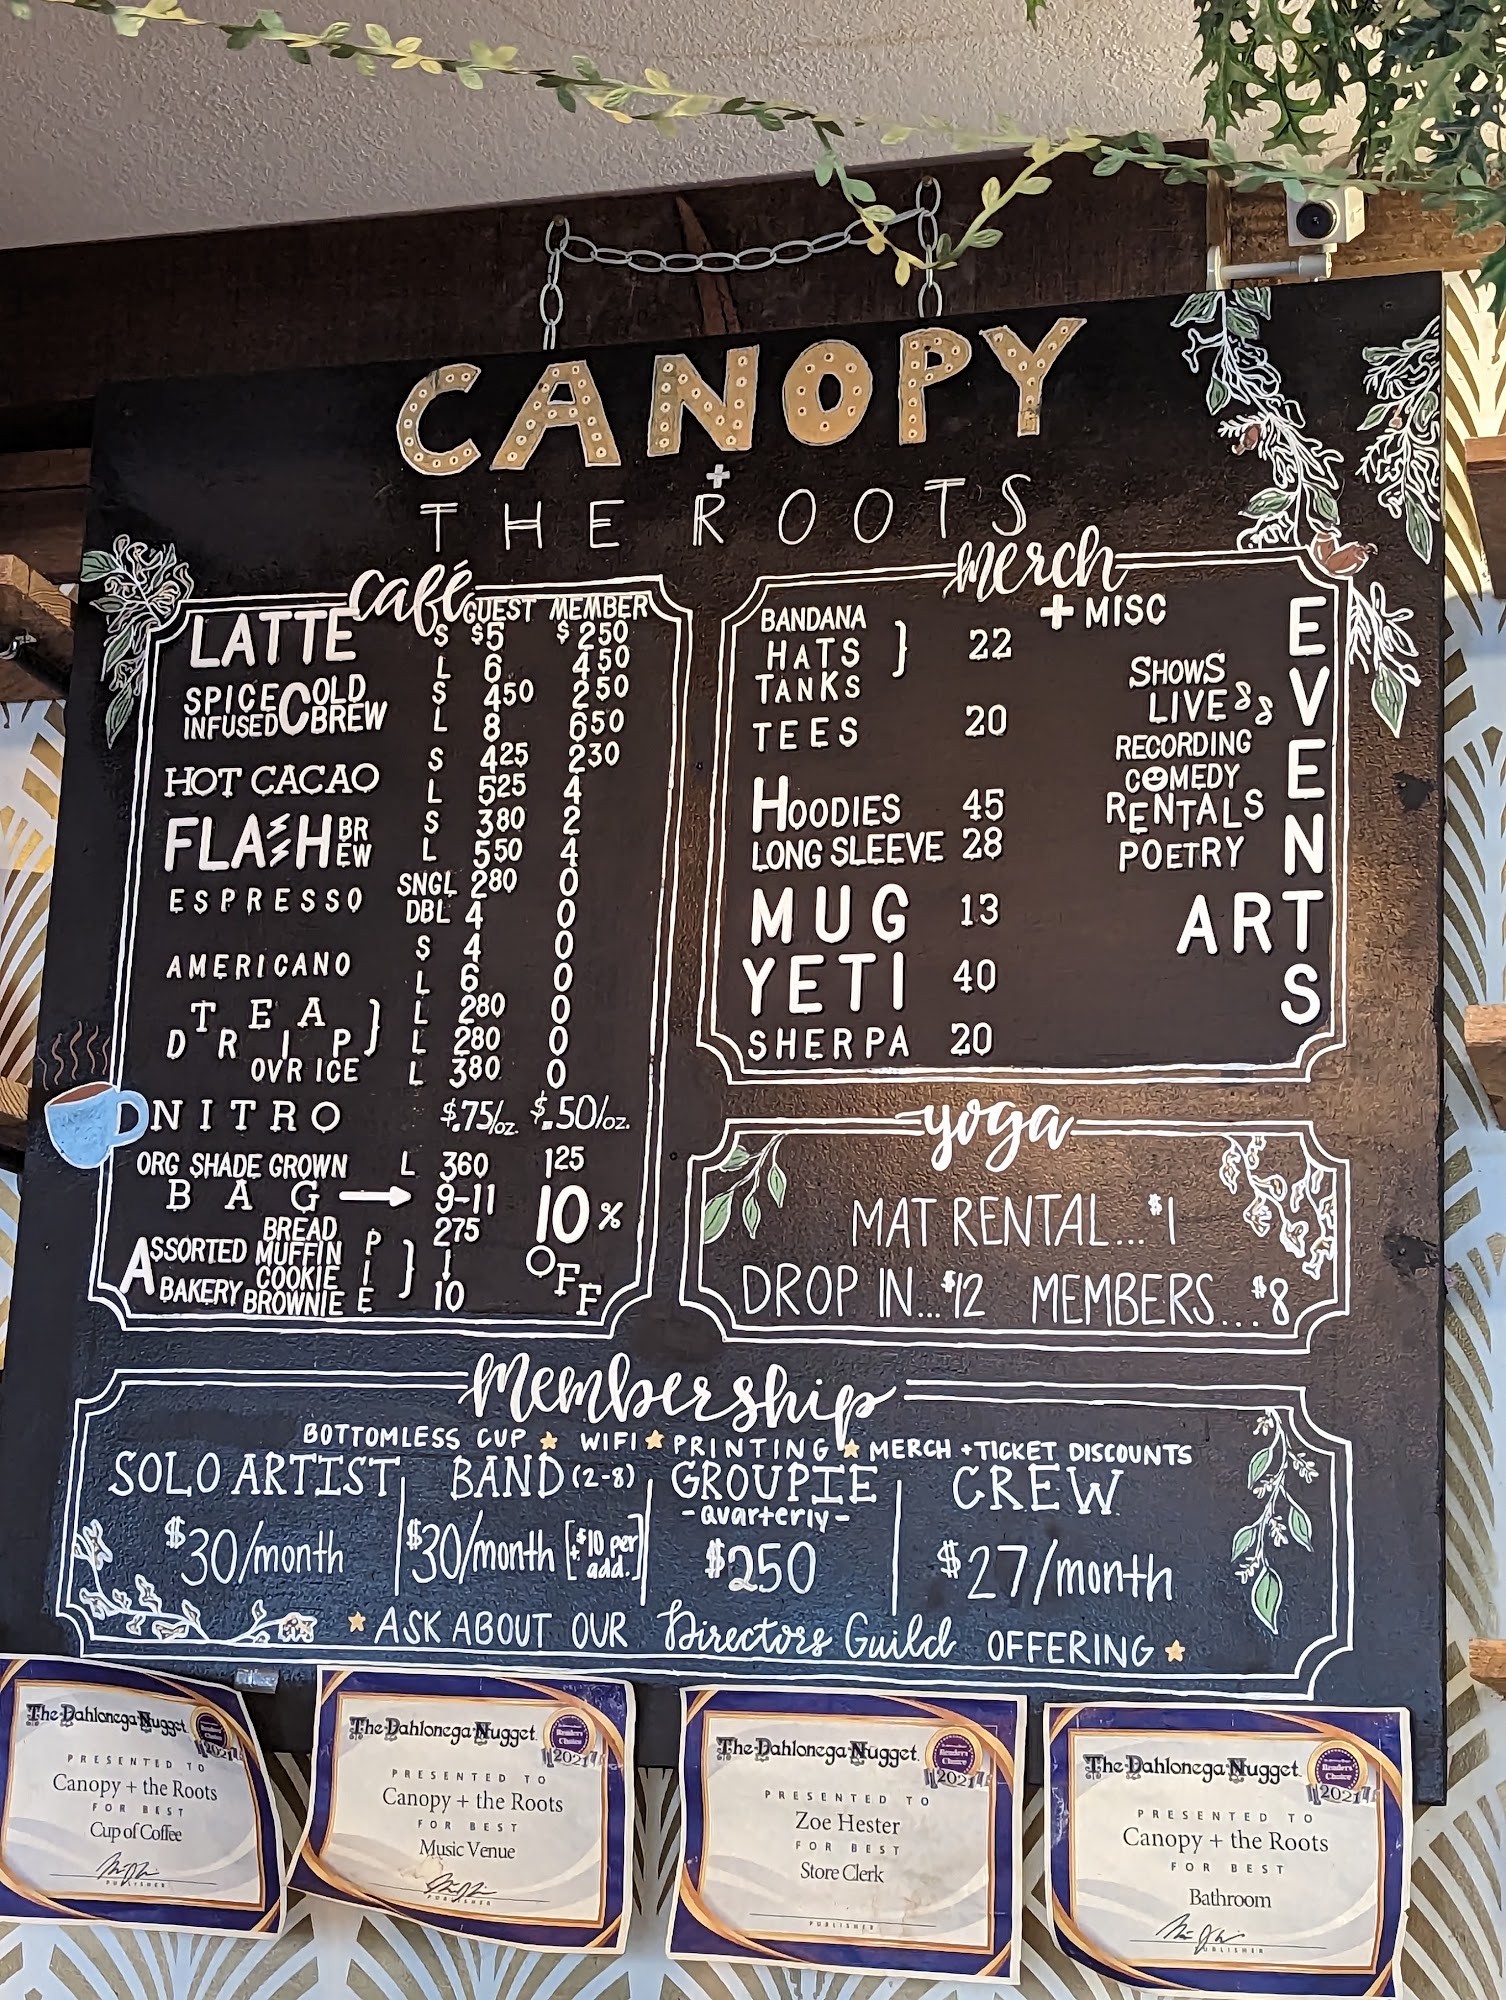 CANOPY
+
THE ROOTS
café
GUEST MEMBER
LATTE S $5 $250
L 6 450
SPICE INFUSED COLD BREW S 450 250
L 8 650
HOT CACAO S 425 230
L 525 4
FLASH BREW S 380 2
L 550 4
ESPRESSO SNGL 280 0
DBL 4 0
AMERICANO S 4 0
L 6 0
TEA L 280 0
DRIP L 280 0
OVR ICE L 380 0
NITRO $.75/oz. $.50/oz.
ORG SHADE GROWN L 360 125
BAG → 9-11 10% OFF
ASSORTED BAKERY BREAD 275
MUFFIN
COOKIE
BROWNIE 10
PIE
merch
+ MISC
BANDANA
HATS 22
TANKS
TEES 20
HOODIES 45
LONG SLEEVE 28
MUG 13
YETI 40
SHERPA 20
EVENTS
SHOWS
LIVE
RECORDING
COMEDY
RENTALS
POETRY
ART
yoga
MAT RENTAL... $1
DROP IN... $12 MEMBERS... $8
Membership
BOTTOMLESS CUP ★ WIFI ★ PRINTING ★ MERCH + TICKET DISCOUNTS
SOLO ARTIST
$30/month
BAND (2-8)
$30/month [+$10 per add.]
GROUPIE
- Quarterly -
$250
CREW
$27/month
★ ASK ABOUT OUR Directors Guild OFFERING ★
The Dahlonega Nugget
Readers' Choice
2021
PRESENTED TO
Canopy + the Roots
FOR BEST
Cup of Coffee
PUBLISHER
The Dahlonega Nugget
Readers' Choice
2021
PRESENTED TO
Canopy + the Roots
FOR BEST
Music Venue
PUBLISHER
The Dahlonega Nugget
Readers' Choice
2021
PRESENTED TO
Zoe Hester
FOR BEST
Store Clerk
PUBLISHER
The Dahlonega Nugget
Readers' Choice
2021
PRESENTED TO
Canopy + the Roots
FOR BEST
Bathroom
PUBLISHER